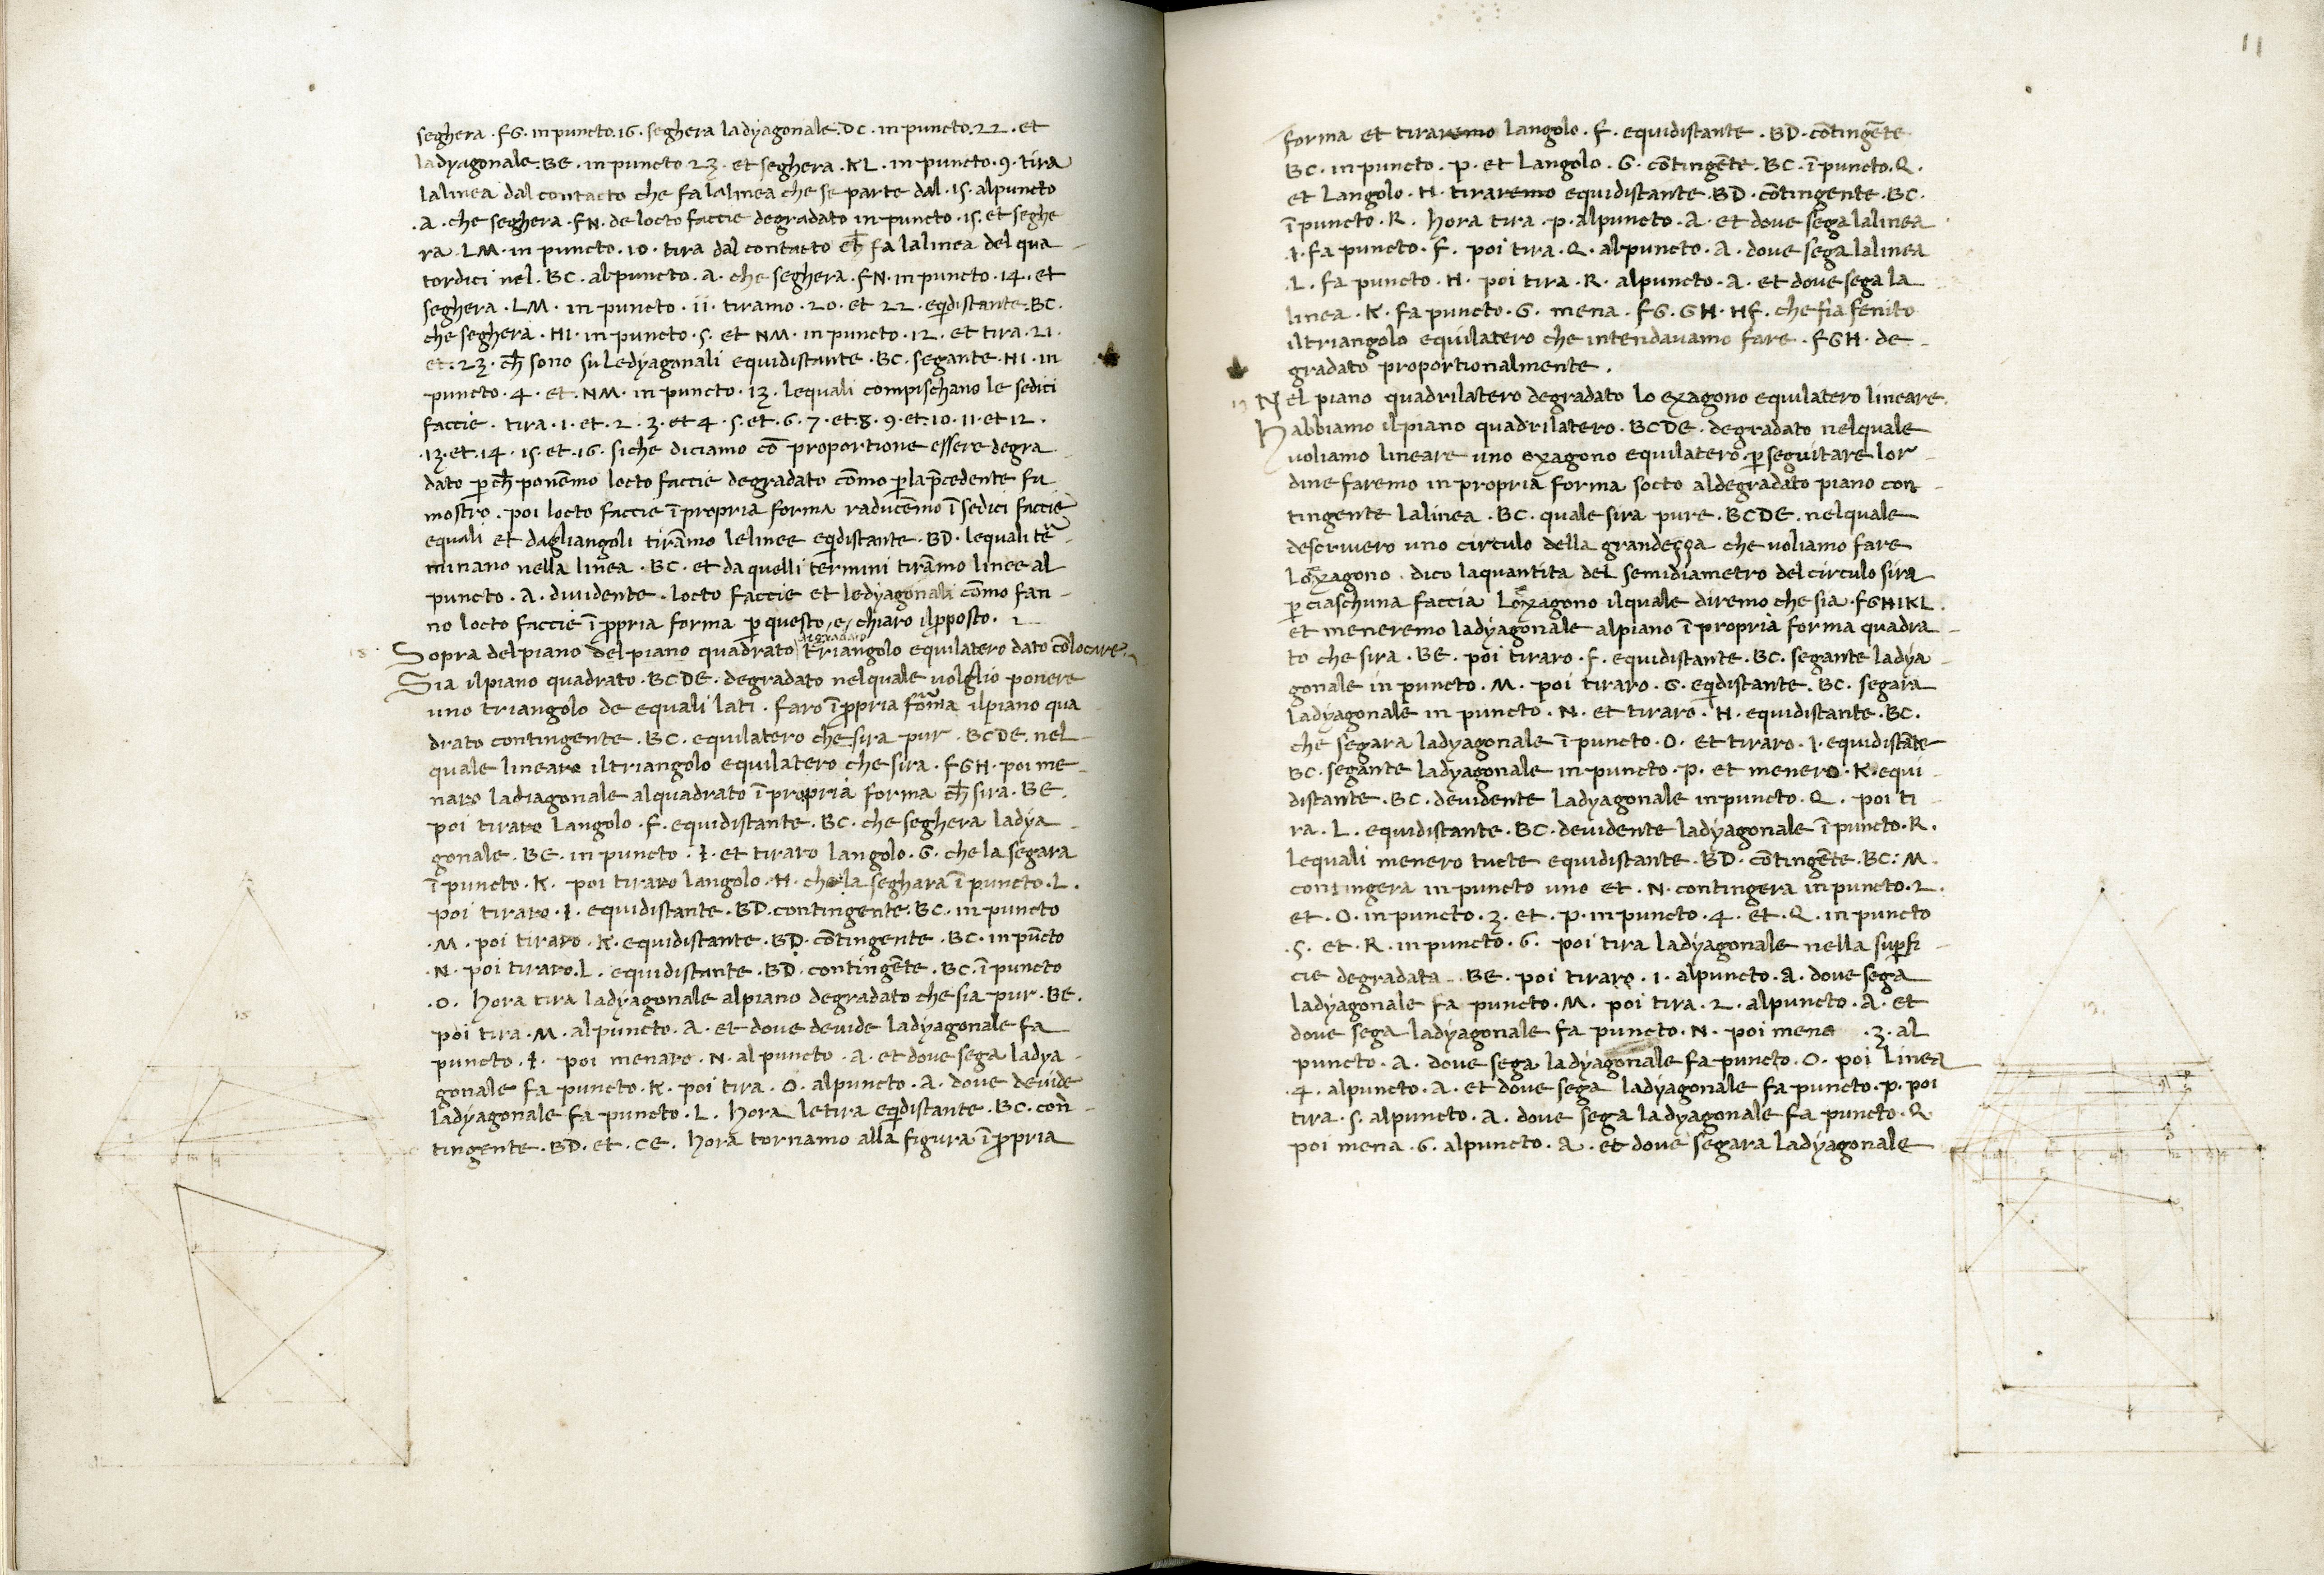 seghera .FG. in puncto .16. seghera ladyagonale .DC. in puncto .22. et
ladyagonale .BE. in puncto 23. et seghera .KL. in puncto .9. tira
lalinea dal contacto che fa lalinea che se parte dal .15. alpuncto
.A. che seghera .FN. de locto faccie degradato in puncto .15. et seghe
ra .LM. in puncto .10. tira dal contacto ch̄ fa lalinea del qua
tordici nel .BC. alpuncto .A. che seghera .FN. in puncto .14. et
seghera .LM. in puncto .ii. tiramo .20. et 22. eqdistante .BC.
che seghera .HI. in puncto .5. et NM. in puncto .12. et tira .21.
et .23. ch̄ sono su Ledyagonali equidistante .BC. segante .HI. in
puncto .4. et .NM. in puncto .13. lequali compischano le sedici
faccie. tira .1. et .2. 3. et 4. 5. et .6. 7. et .8. 9. et .10. 11. et 12.
.13. et .14. 15. et .16. siche diciamo cō proportione essere degra
dato p ch̄ ponēmo locto faccie degradato cōmo p la p̄cedente fu
mostro. poi locto faccie ī propria forma raducēmo ī sedici faccie
equali et dagliangoli tirāmo lelinee eqdistante .BD. lequali tē
minano nella linea .BC. et da quelli termini tirāmo linee al
puncto .A. dividente. locto faccie et ledyagonali cōmo fan-
no locto faccie ī ppria forma p questo e chiaro ilpposto.
18. Sopra delpiano delpiano quadrato degradato triangolo equilatero dato cōlocare.
Sia ilpiano quadrato .BCDE. degradato nelquale volglio ponere
uno triangolo de equali lati. faro ī ppria forma ilpiano qua
drato contingente .BC. equilatero che sira pur .BCDE. nel-
quale linearo iltriangolo equilatero che sira .FGH. poi me-
naro ladiagonale alquadrato ī propria forma ch̄ sira .BE.
poi tiraro Langolo .F. equidistante .BC. che seghera ladya-
gonale .BE. in puncto .I. et tiraro langolo .G. che la segara
ī puncto .K. poi tiraro langolo .H. che la seghara ī puncto .L.
poi tiraro .I. equidistante .BD. contingente .BC. in puncto
.M. poi tiraro .K. equidistante .BD. cōtingente .BC. in pūcto
.N. poi tiraro .L. equidistante .BD. contingēte .BC. ī puncto
.O. hora tira ladyagonale alpiano degradato che sia pur .BE.
poi tira .M. alpuncto .A. et dove devide ladyagonale fa
puncto .I. poi menaro .N. alpuncto .A. et dove sega ladya-
gonale fa puncto .K. poi tira .O. alpuncto .A. dove devide
ladyagonale fa puncto .L. hora letira eqdistante .BC. con-
tingente .BD. et .CE. hora tornamo alla figura ī ppria
18
11
forma et tiraremo langolo .F. equidistante .BD. cōtingēte
BC. in puncto .P. et Langolo .G. cōtingēte .BC. ī puncto .Q.
et Langolo .H. tiraremo equidistante .BD. cōtingente .BC.
ī puncto .R. hora tira .P. alpuncto .A. et dove sega lalinea
.I. fa puncto .F. poi tira .Q. alpuncto .A. dove sega lalinea
.L. fa puncto .H. poi tira .R. alpuncto .A. et dove sega la
linea .K. fa puncto .G. mena .FG.GH.HF. che fia fenito
iltriangolo equilatero che intendavamo fare .FGH. de-
gradato proportionalmente.
19 Nel piano quadrilatero degradato lo exagono equilatero lineare.
habbiamo ilpiano quadrilatero .BCDE. degradato nelquale
voliamo lineare uno exagono equilatero p seguitare lor-
dine faremo in propria forma socto aldegradato piano con-
tingente lalinea .BC. quale sira pure .BCDE. nelquale
descrivero uno circulo della grandeçça che voliamo fare
Loexagono. dico laquantita del semidiametro del circulo sira
p ciaschuna faccia Loexagono ilquale diremo che sia .FGHIKL.
et meneremo ladyagonale alpiano ī propria forma quadra-
to che sira .BE. poi tiraro .F. equidistante .BC. segante ladya-
gonale in puncto .M. poi tiraro .G. eqdistante .BC. segara
ladyagonale in puncto .N. et tiraro .H. equidistante .BC.
che segara ladyagonale ī puncto .O. et tiraro .I. equidistāte
BC. segante ladyagonale in puncto .P. et menero .K. equi-
distante .BC. devidente ladyagonale in puncto .Q. poi ti-
ra .L. equidistante .BC. devidente ladyagonale ī puncto .R.
lequali menero tucte equidistante .BD. cōtingēte .BC: M.
contingera in puncto uno et .N. contingera in puncto .2.
et .O. in puncto .3. et .P. in puncto .4. et .Q. in puncto
.5. et .R. in puncto .6. poi tira ladyagonale nella supfi-
cie degradata .BE. poi tiraro .1. alpuncto .A. dove sega
ladyagonale fa puncto .M. poi tira .2. alpuncto .A. et
dove sega ladyagonale fa puncto .N. poi mena .3. al
puncto .A. dove sega ladyagonale fa puncto .O. poi linea
.4. alpuncto .A. et dove sega ladyagonale fa puncto .P. poi
tira .5. alpuncto .A. dove sega ladyagonale fa puncto .Q.
poi mena .6. alpuncto .A. et dove segara ladyagonale